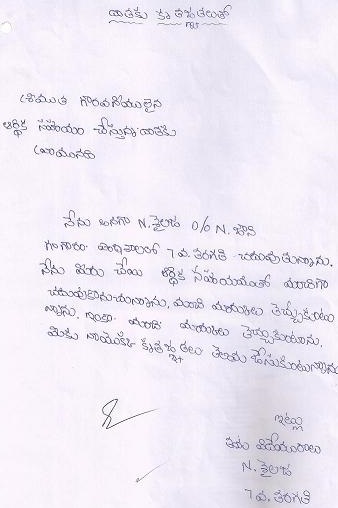 దాతకు కృతజ్ఞతలుతో
శ్రీయుత గౌరవనీయులైన
ఆర్థిక సహాయం చేస్తున్న దాతకు
వ్రాయునది
నేను అనగా N. శైలజ D/o N. జాన్
7 వ. తరగతి చదువుతున్నాను.
నేను మీరు చేయు ఆర్థిక సహాయముతో మంచిగా
చదువుకుంటున్నాను. మంచి మార్కులు తెచ్చుకుంటు
న్నాను. ఇంకా మంచి మార్కులు తెచ్చుకుంటాను.
మీకు నాయొక్క కృతజ్ఞతలు తెలియ జేసుకుంటున్నాను
ఇట్లు
తమ విదేయురాలు
N. శైలజ
7 వ. తరగతి